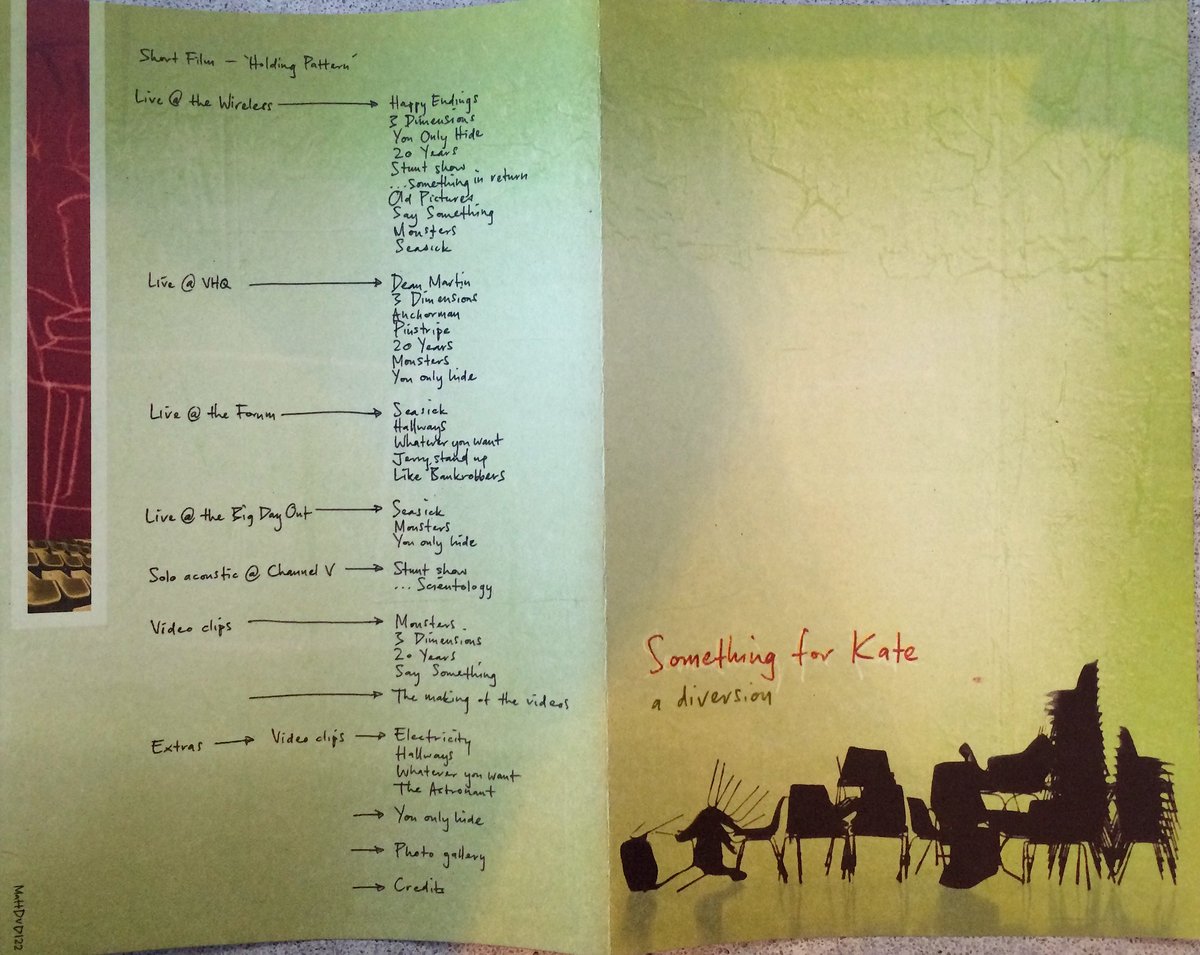 Short Film – 'Holding Pattern'
Live @ the Wireless → Happy Endings
3 Dimensions
You Only Hide
20 Years
Stunt show
...something in return
Old Pictures
Say Something
Monsters
Seasick
Live @ VHQ → Dean Martin
3 Dimensions
Anchorman
Pinstripe
20 Years
Monsters
You only hide
Live @ the Forum → Seasick
Hallways
Whatever you want
Jerry, stand up
Like Bankrobbers
Live @ the Big Day Out → Seasick
Monsters
You only hide
Solo acoustic @ Channel V → Stunt show
... Scientology
Video clips → Monsters
3 Dimensions
20 Years
Say Something
→ The making of the videos
Extras → Video clips → Electricity
Hallways
Whatever you want
The Astronaut
→ You only hide
→ Photo gallery
→ Credits
MATTDVD122
Something for Kate
a diversion